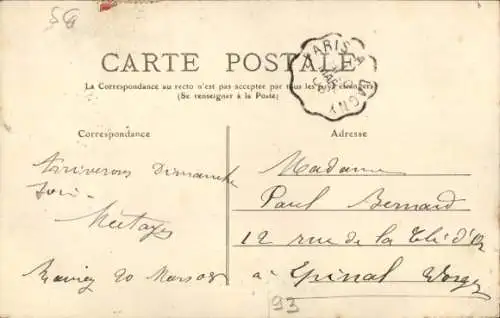 CARTE POSTALE
La Correspondance au recto n'est pas acceptée par tous les pays étrangers
(Se renseigner à la Poste)
PARIS A LAGNY
Correspondance
Adresse
Arriverons Dimanche
soir.
Madame
Paul Bernard
12 rue de la Clé d'Or
à Epinal Vosges
20 Mars 08
93